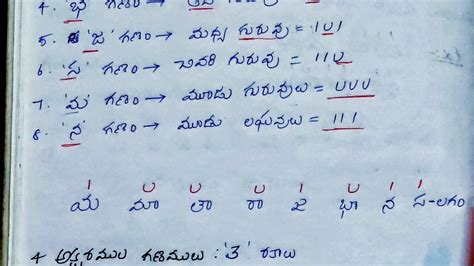 4. 'భ' గణం →
5. 'జ' గణం → మధ్య గురువు = I U I
6. 'స' గణం → చివరి గురువు = I I U
7. 'మ' గణం → మూడు గురువులు = U U U
8. 'న' గణం → మూడు లఘువులు = I I I
I U U U I U I I
య మా తా రా జ భా న స-లగం
4 అక్షరముల గణములు : '3' రకాలు